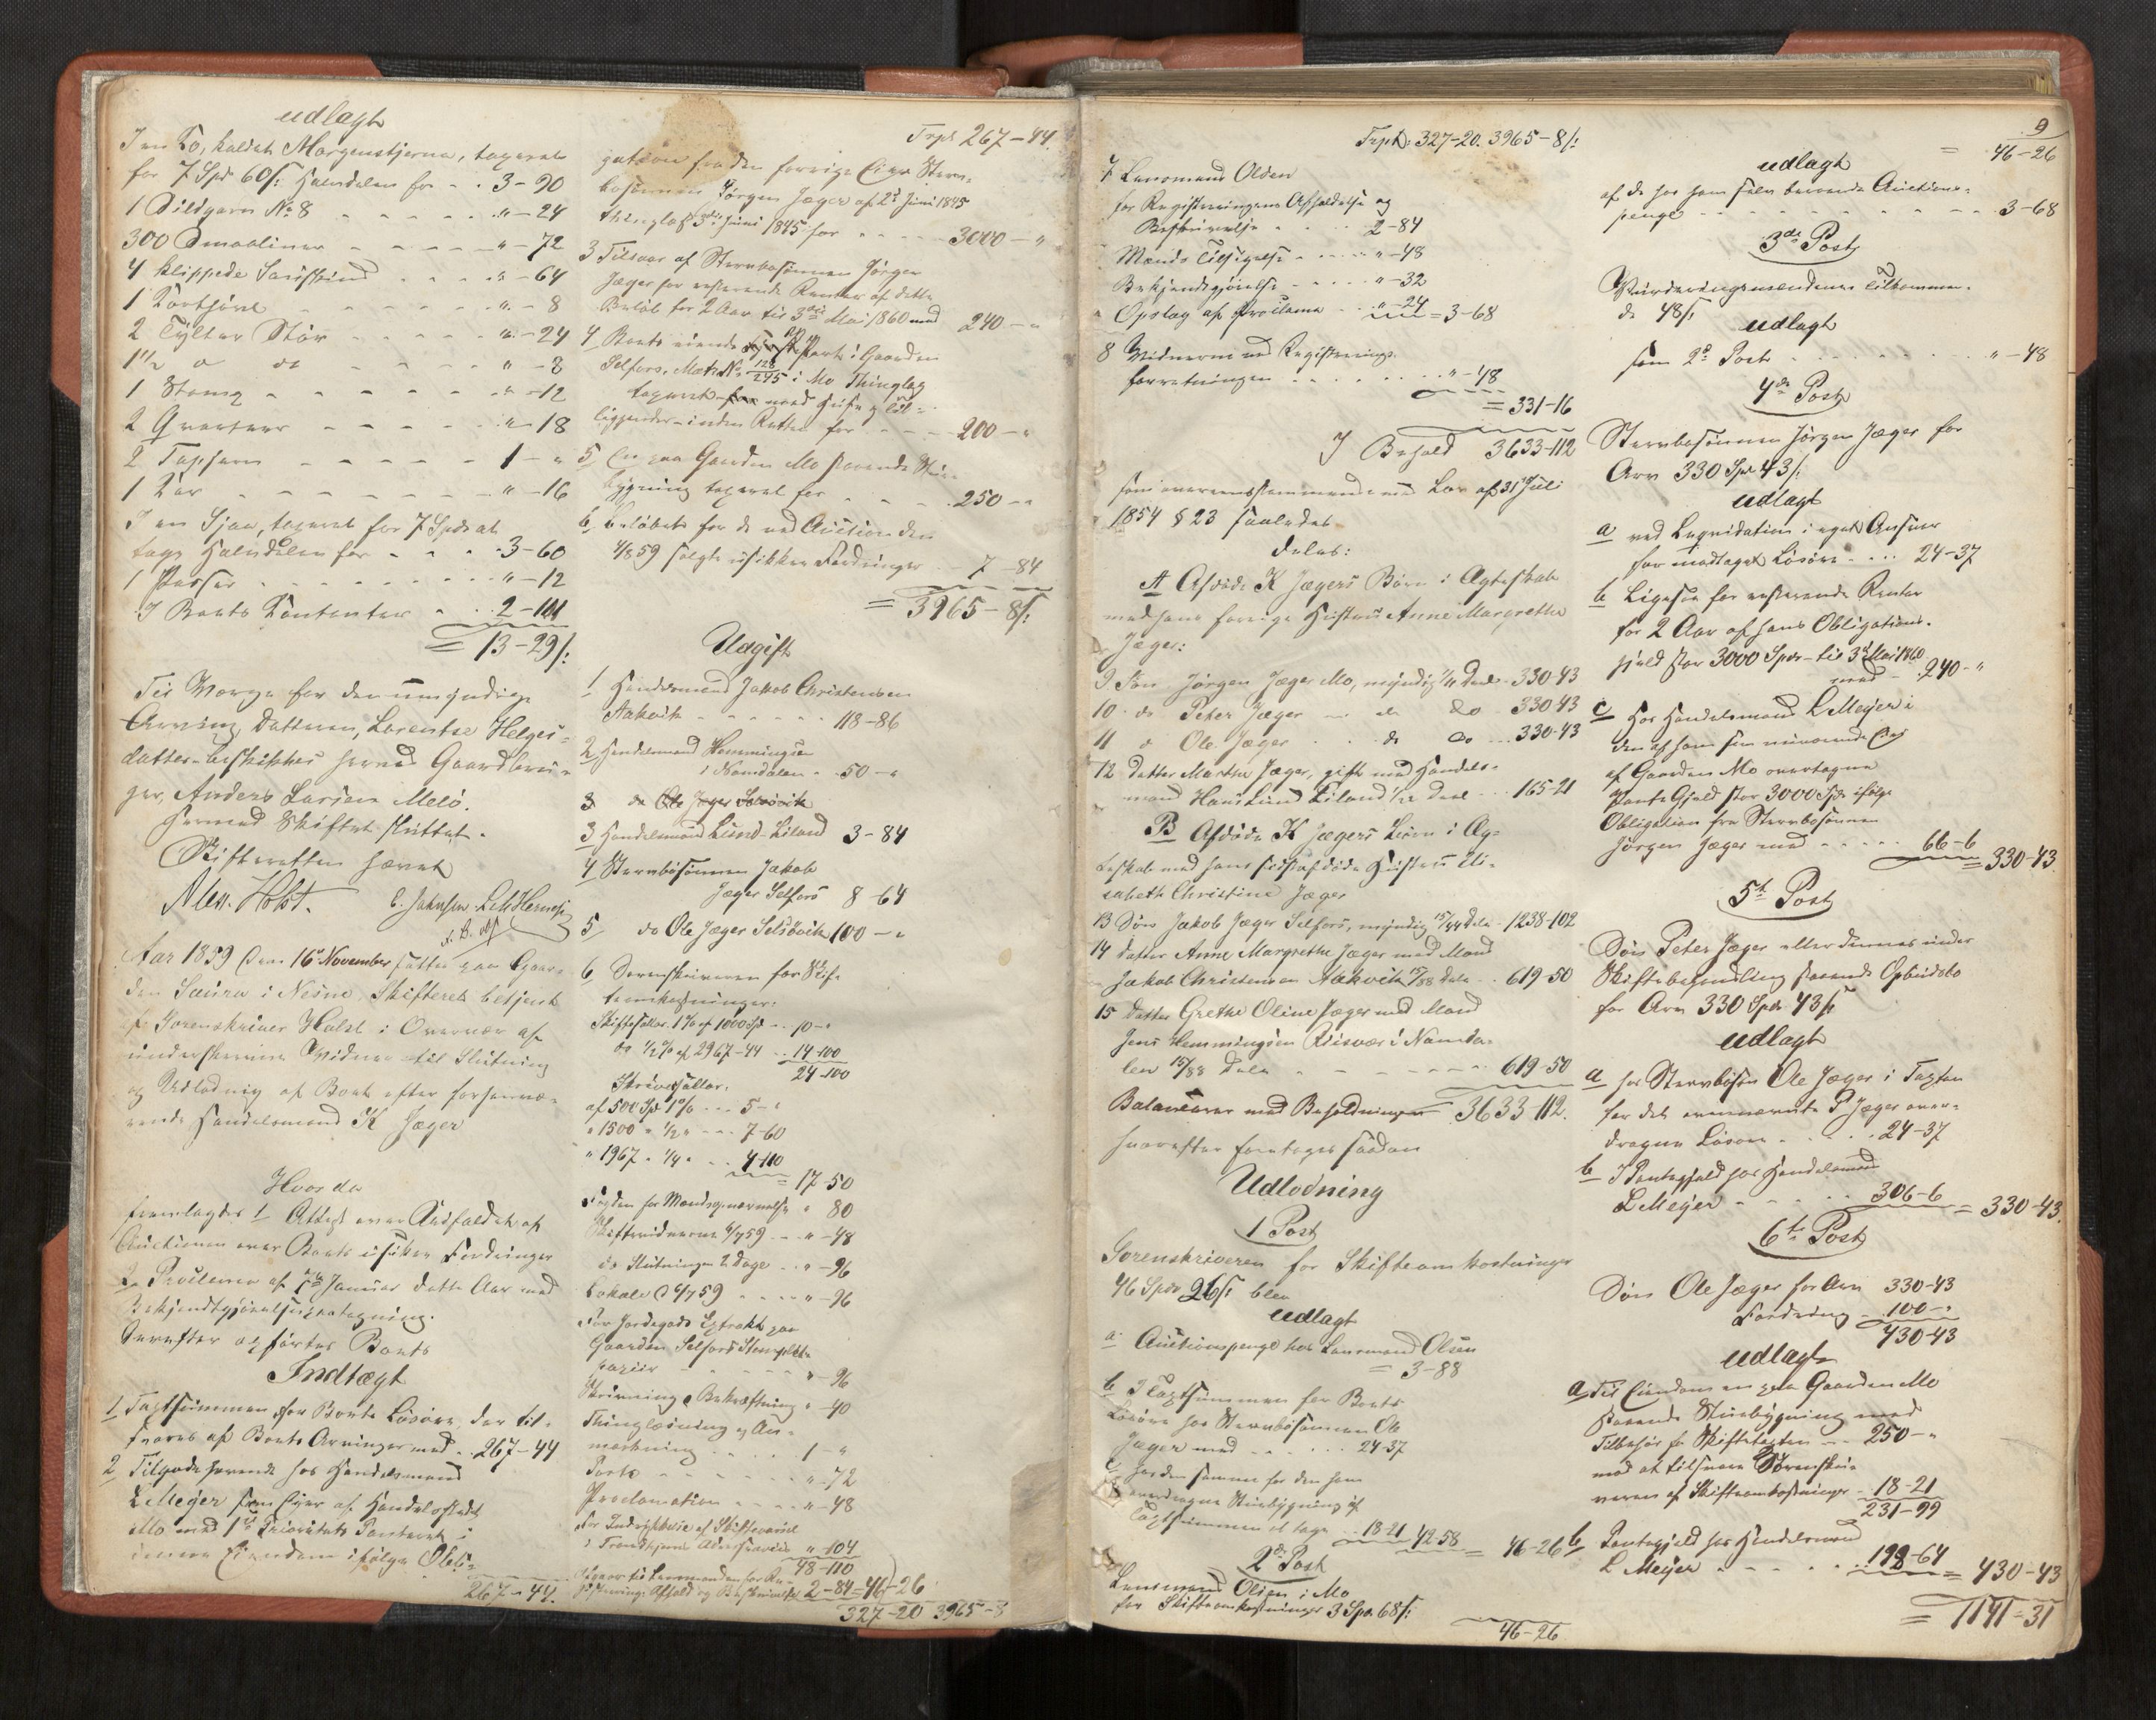 udlagt
I en Ko, kaldet Morgenstjerna, taxeret
for 7 Spd 60 s: Halvdelen for - . 3-90
1 Sildgarn No 8 - - - - " - 24
300 Smaaliner - - - - " - 72
4 klippede Saueskind - - - " - 64
1 - - - - " - 8
2 Tylter Stör - - - - " - 24
1 1/2 d do - - - - " - 8
1 Stamp - - - - " - 12
2 Qvarterer - - - - " - 18
2 - - - - 1 - "
1 Kar - - - - " - 16
I en Sjaa, taxeret for 7 Spd at
tage Halvdelen for - - - 3-60
1 Passer - - - - " - 12
I Boets Contanter - . 2-101
= 13-29 s:
Til Værge for den umyndige
Arving Datteren, Lorentse Helges-
datter beskikkes herved Gaardbru-
ger, Anders Larsen Melö.
Hermed Skiftet sluttet.
Skifteretten hævet
Alex. Holst. E. Johnsen
Aar 1859 den 16de November sattes paa Gaar-
den Saura i Nesne Skifteret betjent
af Sorenskriver Holst i Overvær af
underskrevne Vidner til Slutning
og Udlodning af Boet efter forhenvæ-
rende Handelsmand K Jæger
Hvorda
fremlagdes 1 Attest over Udfaldet af
Auctionen over Boets usikre Fordringer
2 Proclama af 7de Januar dette Aar med
Bekjendtgjörelsespaategning.
Derefter opförtes Boets
Indtægt
1 Taxtsummen for Boets Lösöre, der til-
svares af Boets Arvinger med . 267-44
2 Tilgodehavende hos Handelsmand
L Meyer som Eier af Handelsstedet
Mo med 1ste Prioritets Panteret i
denne Eiendom ifölge Obli-
267-44.
Trpt 267-44.
gation fra den forrige Eier Sterv-
bosönnen Jörgen Jæger af 2d Juni 1845
thinglæst 3die Juni 1845 for - - - 3000 - "
3 Tilsvar af Stervbosönnen Jörgen
Jæger for resterende Renter af dette
Belöb for 2 Aar til 3die Mai 1860 med 240 - "
4 Boets eiende Part i Gaarden
Selfors, Matr No 128/295 i Mo Thinglag
taxeret med Huse og til-
liggender - inden Retten for - - - 200 - "
5 En paa Gaarden Mo staaende Stue-
bygning taxeret for - - . 250 - "
6 Belöbet for de ved Auction den
4/8 59 solgte usikkre Fordringer - 7-84
= 3965-8 s:
Udgift
1 Handelsmand Jakob Christensen
Aakvik - - - - 118-86
2 Handelsmand Hemmingsen
i Namdalen - . 50 - "
3 do Ole Jæger Selsövik
3 Handelsmand Lund-Liland 3-84
4 Stervbosönnen Jakob
Jæger Selfors 8-64
5 do Ole Jæger Selsövik 100 - "
6 Sorenskriveren for Skif-
teomkostninger:
Skiftesallar. 1% af 1000 Spd - 10 - "
do 1/2% af 2967-44 . . 14-100
24-100
Skriversallar.
af 500 Spd 1% - - 5 - "
" 1500 " 1/2 " - - 7-60
" 1967 " 1/4 " - . 4-110
= 17-50
Fogden for Mændsopnævnelse " 80
Skiftevidnerne 4/7 59 - - " - 48
do Slutningen 2 Dage . . " - 96
Lokale 4/7 59 - - - " - 96
For Jordegods Extrakt paa
Gaarden Selfors Stemplet
papiir - - - " - 96
Skrivning & Bekræftning " - 40
Thinglæsning & An-
mærkning - - . 1 - "
Porto - - - - " - 72
Proclamation - - - " - 48
For Indrykkelse af Skiftevarsel
i Trondhjems Adresseavis " - 104
48-110
afgaar til Lensmanden for Re-
gistrerings Afhold og Beskrivelse 2-84 = 46-26
327-20 3965-8
9
Trpt: 327-20. 3965-8 s:
7 Lensmand Olsen
for Registreringens Afholdelse og
Beskrivelse - . . . 2-84
Mænds Tilsigelse - - - " - 48
Bekjendtgjörelse - - - " - 32
Opslag af Proclama - . " - 24 = 3-68
8 Vidnerne ved Registrerings-
forretningen - - - - " - 48
= 331-16
I Behold 3633-112
som overeensstemmende med Lov af 31 Juli
1854 § 23 saaledes
deles:
A Afdöde K Jægers Börn i Ægteskab
med hans forrige Hustru Anne Margrethe
Jæger:
9 Sön Jörgen Jæger Mo, myndig 1/11 Deel - 330-43
10 do Peter Jæger - do do 330-43
11 d Ole Jæger . . do do . . 330-43
12 Datter Marthe Jæger, gift med Handels-
mand Hans Lund Liland 1/22 Deel . . . 165-21
B Afdöde K Jægers Börn i Æg-
teskab med hans sidst afdöde Hustru Eli-
sabeth Christine Jæger
13 Sön Jakob Jæger Selfors, myndig 15/44 Dele - 1238-102
14 Datter Anne Margrethe Jæger med Mand
Jakob Christensen Aakvik 15/88 Dele . . 619-50
15 Datter Grethe Oline Jæger med Mand
Jens Hemmingsen Riisvær i Namda-
len 15/88 Dele - - - - - 619-50
Balancerer med Beholdningen = 3633-112.
hvorefter foretoges saadan
Udlodning
1 Post
Sorenskriveren for Skifteomkostninger
46 Spd 26 s: blev
udlagt
a. Auctionspenge hos Lensmand Olsen
= 3-88
b I Taxtsummen for Boets
Lösöre hos Stervbosönnen Ole
Jæger med - . . . . 24-37
c hos den samme for den ham
overdragne Stuebygning af
Taxtsummen at tage . . 18-21 42-58 = 46-26
2de Post
Lensmand Olsen i Mo
for Skifteomkostninger 3 Spd. 68 s:
46-26
= 46-26
udlagt
af de hos ham selv beroende Auctions-
penge - - - - - - . 3-68
3die Post
Vurderingsmændenes Tilkommen-
de 48 s:
udlagt
som 2d Post - - - - - " - 48
4de Post
Stervbosönnen Jörgen Jæger for
Arv 330 Spd 43 s:
udlagt
a ved Liqvidation i eget Ansvar
for modtaget Lösöre - . . . 24-37
b Ligesaa for resterende Renter
for 2 Aar af hans Obligations-
gjæld stor 3000 Spd - til 3d Mai 1860
med - . 240 - "
c Hos Handelsmand L Meyer i
den af ham som nuværende Eier
af Gaarden Mo overtagne
Pante Gjæld stor 3000 Spd ifölge
Obligation fra Stervbosönnen
Jörgen Jæger med - - - - 66-6
= 330-43.
5te Post
Sön Peter Jæger eller dennes under
Skiftebehandling staaende Opbudsbo
for Arv 330 Spd 43 s
udlagt
a hos Stervbosön Ole Jæger i Taxten
for det ovennævnte P Jæger over-
dragne Lösöre - . - . . 24-37
b I Pantegjæld hos Handelsmand
L Meyer - - - - 306-6 = 330-43.
6te Post
Sön Ole Jæger for Arv 330-43
Fordring - 100 - "
430-43
udlagt
a Til Eiendom en paa Gaarden Mo
staaende Stuebygning med
Tilbehör for Skiftetaxten - - 250 - "
mod at tilsvare Sorenskri-
veren af Skifteomkostninger - 18-21
231-99
b Pantegjæld hos Handelsmand
L Meyer - - - - . . 198-64 = 430-43
= 1141-31